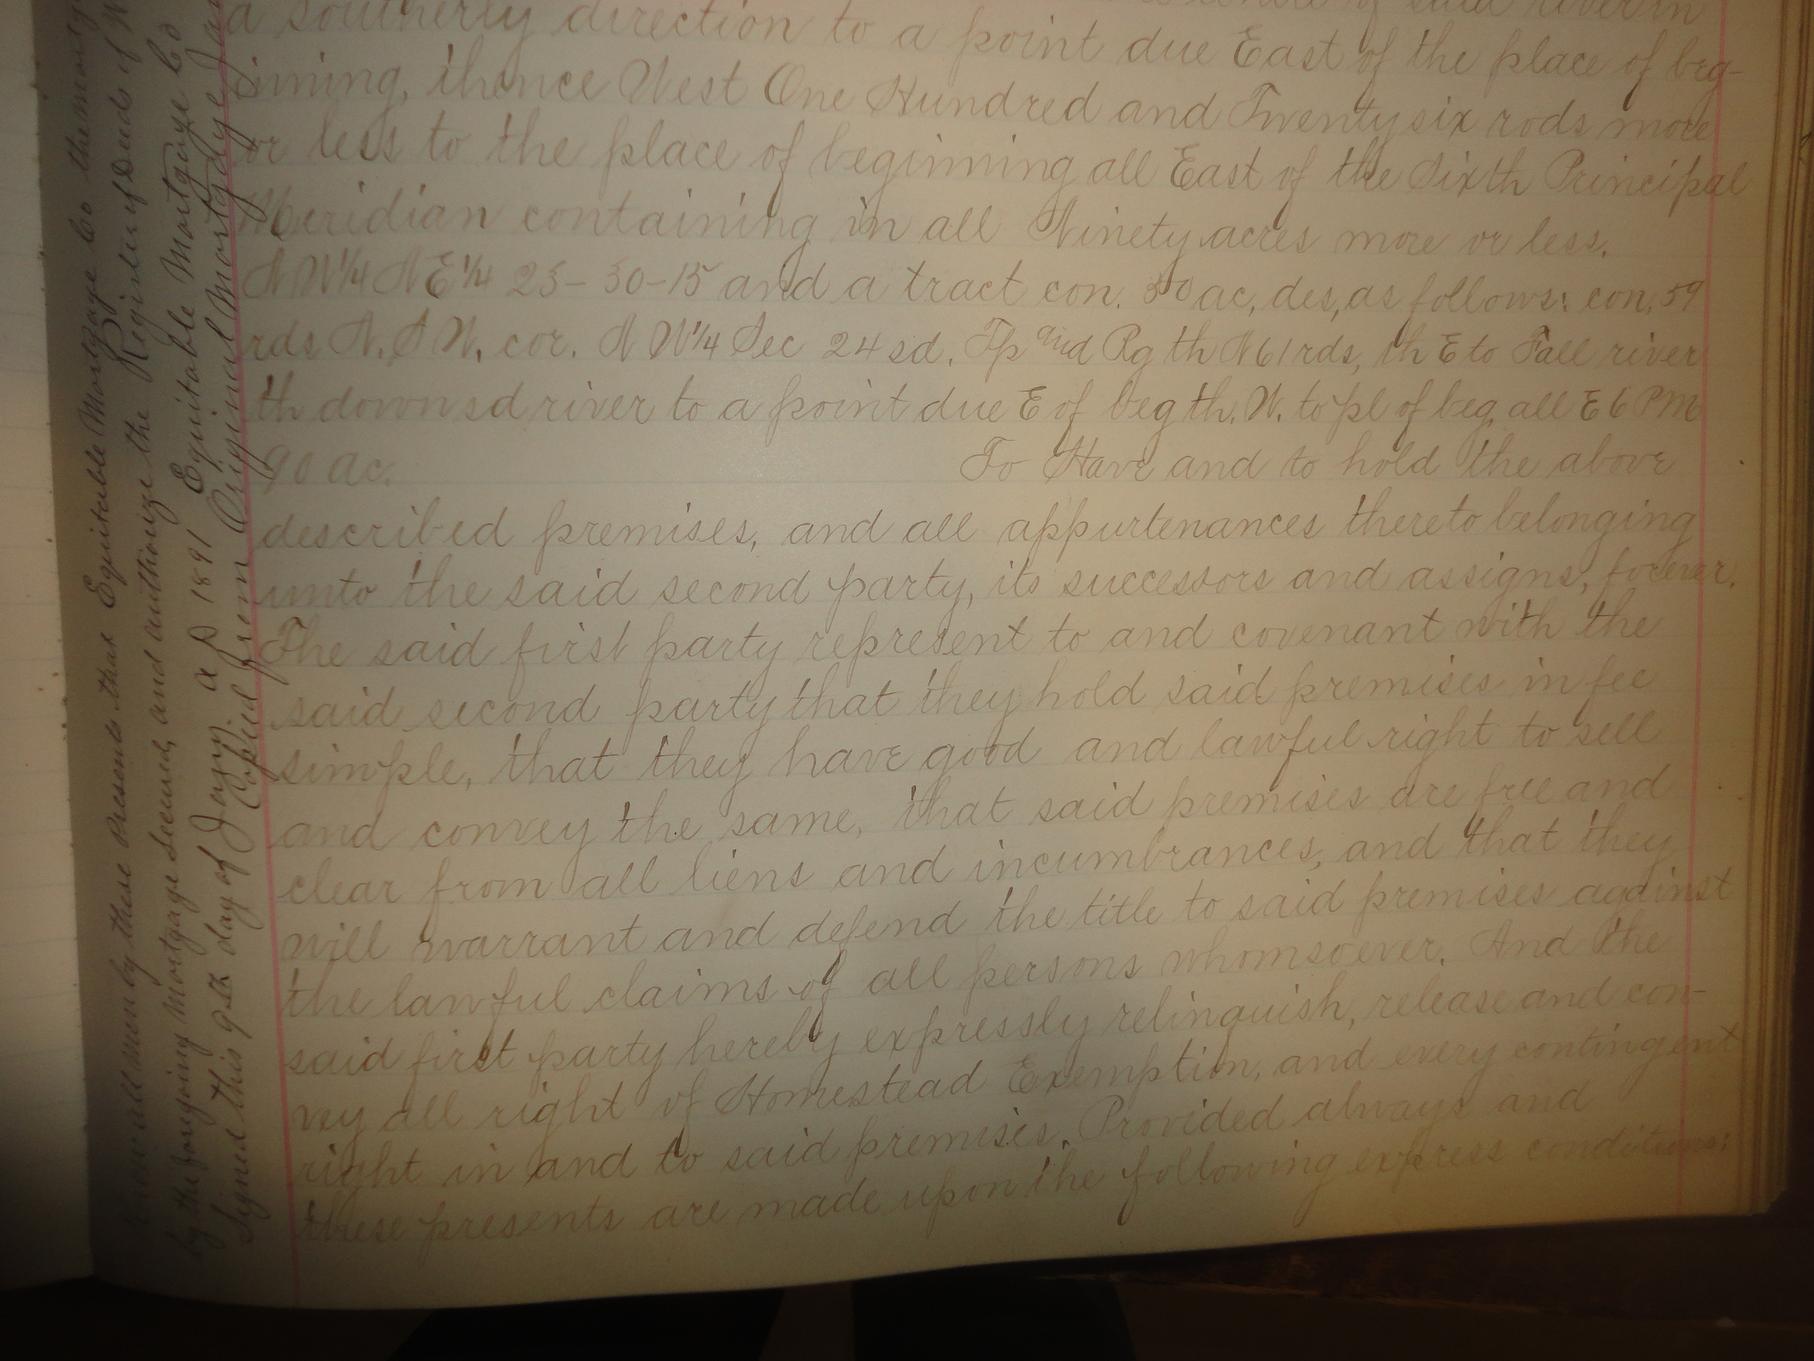 centre of said river in
a southerly direction to a point due East of the place of beg-
inning, thence West One Hundred and Twenty six rods more
or less to the place of beginning all East of the Sixth Principal
Meridian containing in all Ninety acres more or less.
N W 1/4 N E 1/4 23-30-15 and a tract con. 50 ac, des, as follows: con, 59
rds N. S W. cor. N W 1/4 Sec 24 sd. Tp and Rg th N 61 rds, th E to Fall river
th down sd river to a point due E of beg th. W. to pl of beg, all E 6 P M
90 ac.
To Have and to hold the above
described premises, and all appurtenances thereto belonging
unto the said second party, its successors and assigns, forever.
The said first party represent to and covenant with the
said second party that they hold said premises in fee
simple, that they have good and lawful right to sell
and convey the same, that said premises are free and
clear from all liens and incumbrances, and that they
will warrant and defend the title to said premises against
the lawful claims of all persons whomsoever. And the
said first party hereby expressly relinquish, release and con-
vey all right of Homestead Exemption, and every contingent
right in and to said premises. Provided always and
these presents are made upon the following express conditions:
Know all men by these Presents that Equitable Mortgage Co the
by the foregoing Mortgage Secured, and authorize the Register of Deeds of
Signed this 9th day of Jany. a D 1891 Equitable Mortgage Co
Copied from Original Mortgage